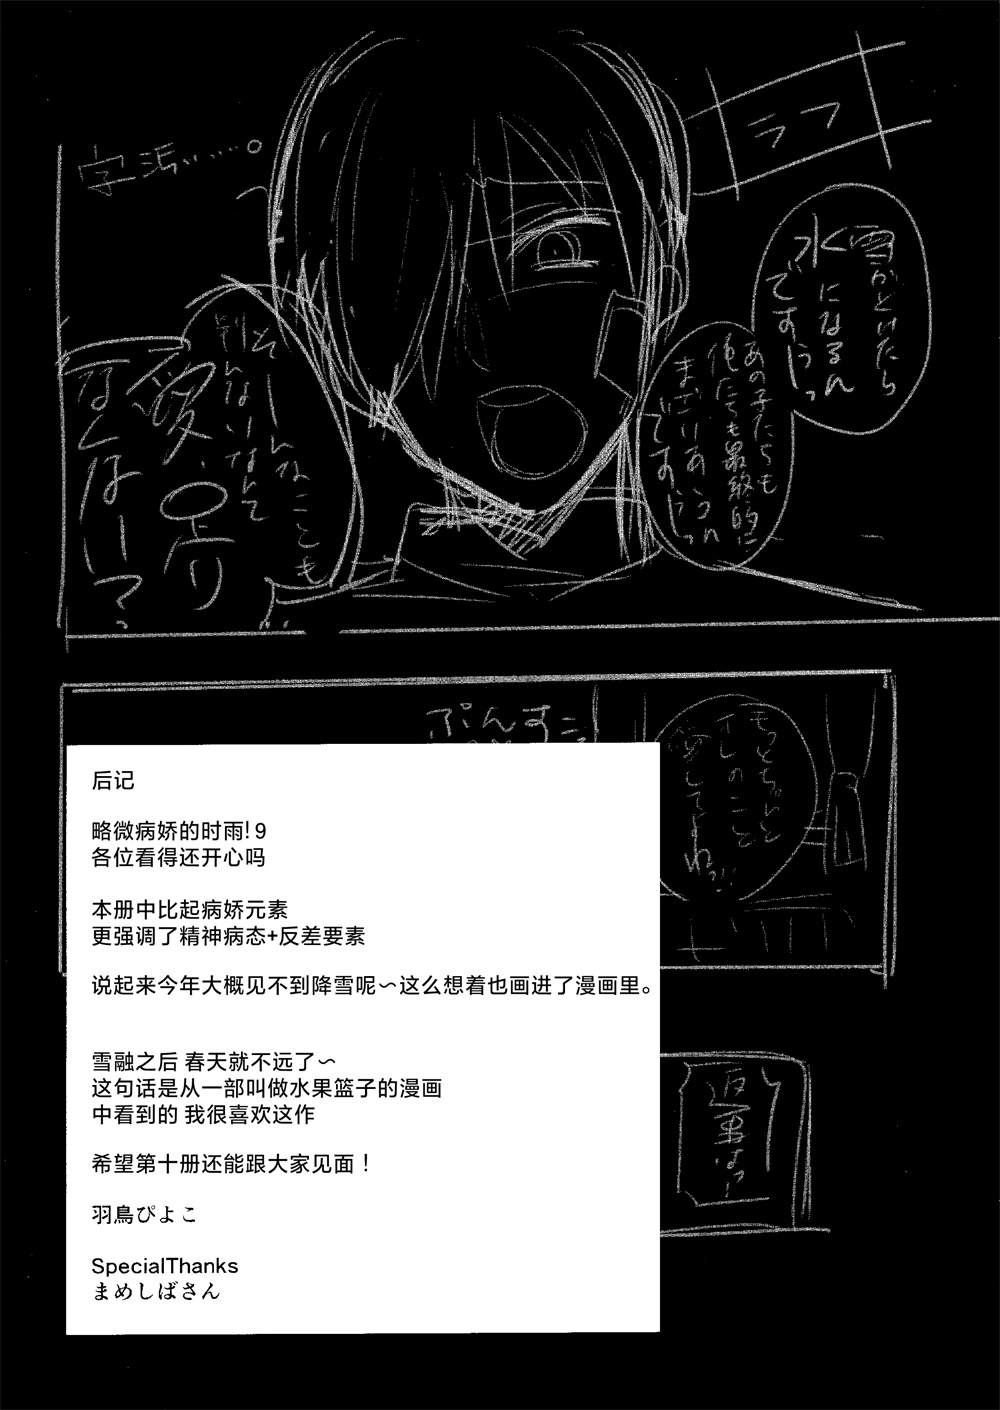 ラフ
字汚い……。
雪がとけたら
水になるん
ですうっ
あの子たちも
俺たちも最終的に
まざりあうっ
ですうっ
そーんなことも
別んないなんて
愛、足り
なくなーい?
ぷんすこ
もっとちゃんと
オレのこと
愛してよねっ
返事はっ!
后记
略微病娇的时雨! 9
各位看得还开心吗
本册中比起病娇元素
更强调了精神病态+反差要素
说起来今年大概见不到降雪呢～这么想着也画进了漫画里。
雪融之后 春天就不远了～
这句话是从一部叫做水果篮子的漫画
中看到的 我很喜欢这作
希望第十册还能跟大家见面！
羽鳥ぴよこ
SpecialThanks
まめしばさん